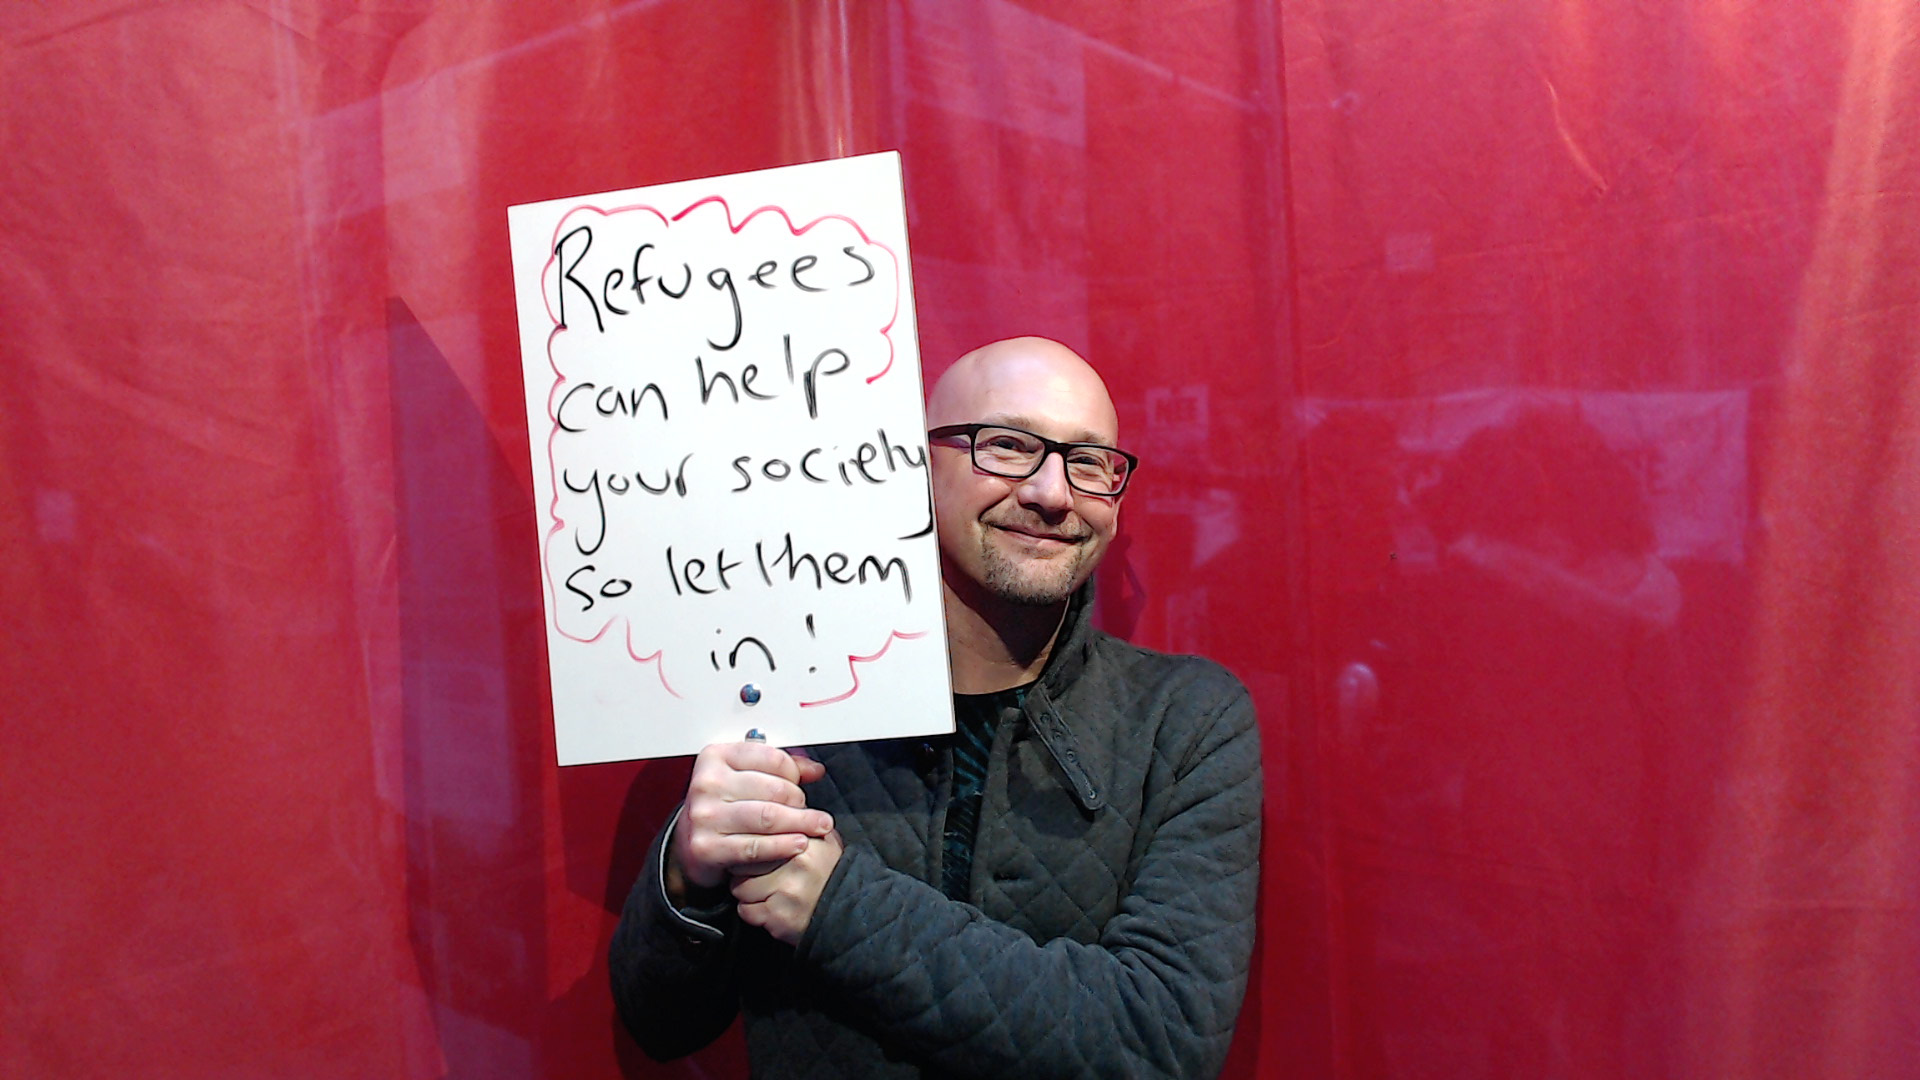 Refugees
can help
your society
so let them
in!